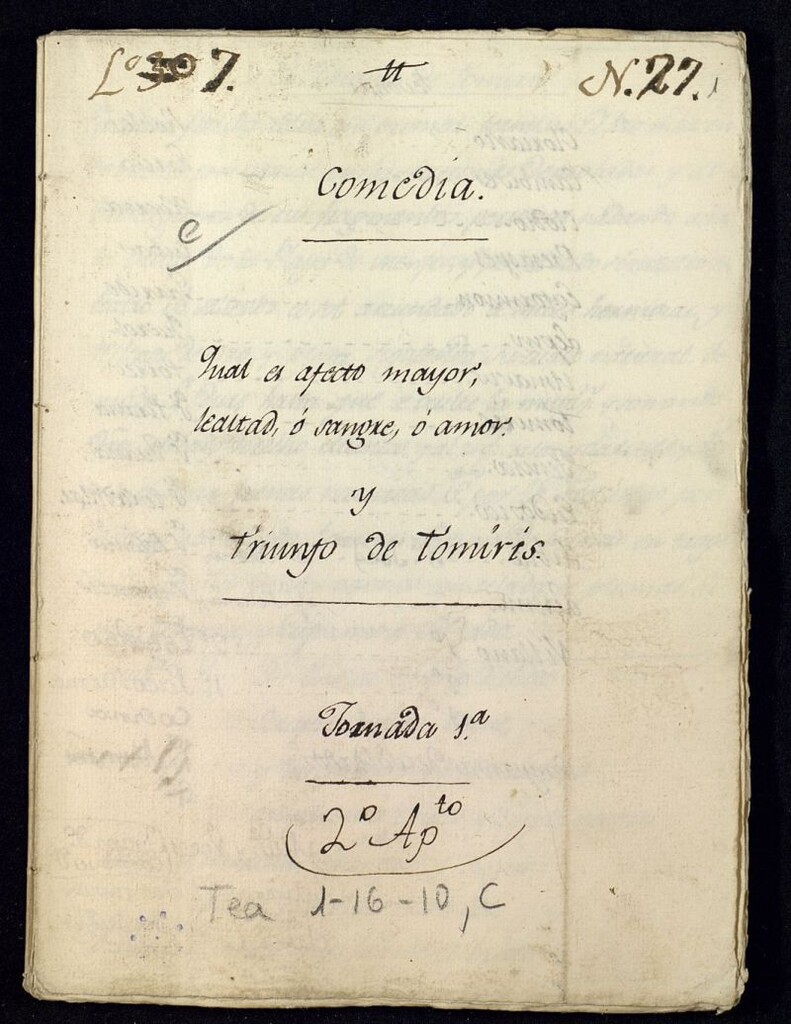 Lº 7. tt N. 27.
Comedia.
C
Qual es afecto mayor,
lealtad, ó sangre, ó amor.
y
Triunfo de Tomiris.
Jornada 1.ª
2º Ap.to
Tea 1-16-10, C